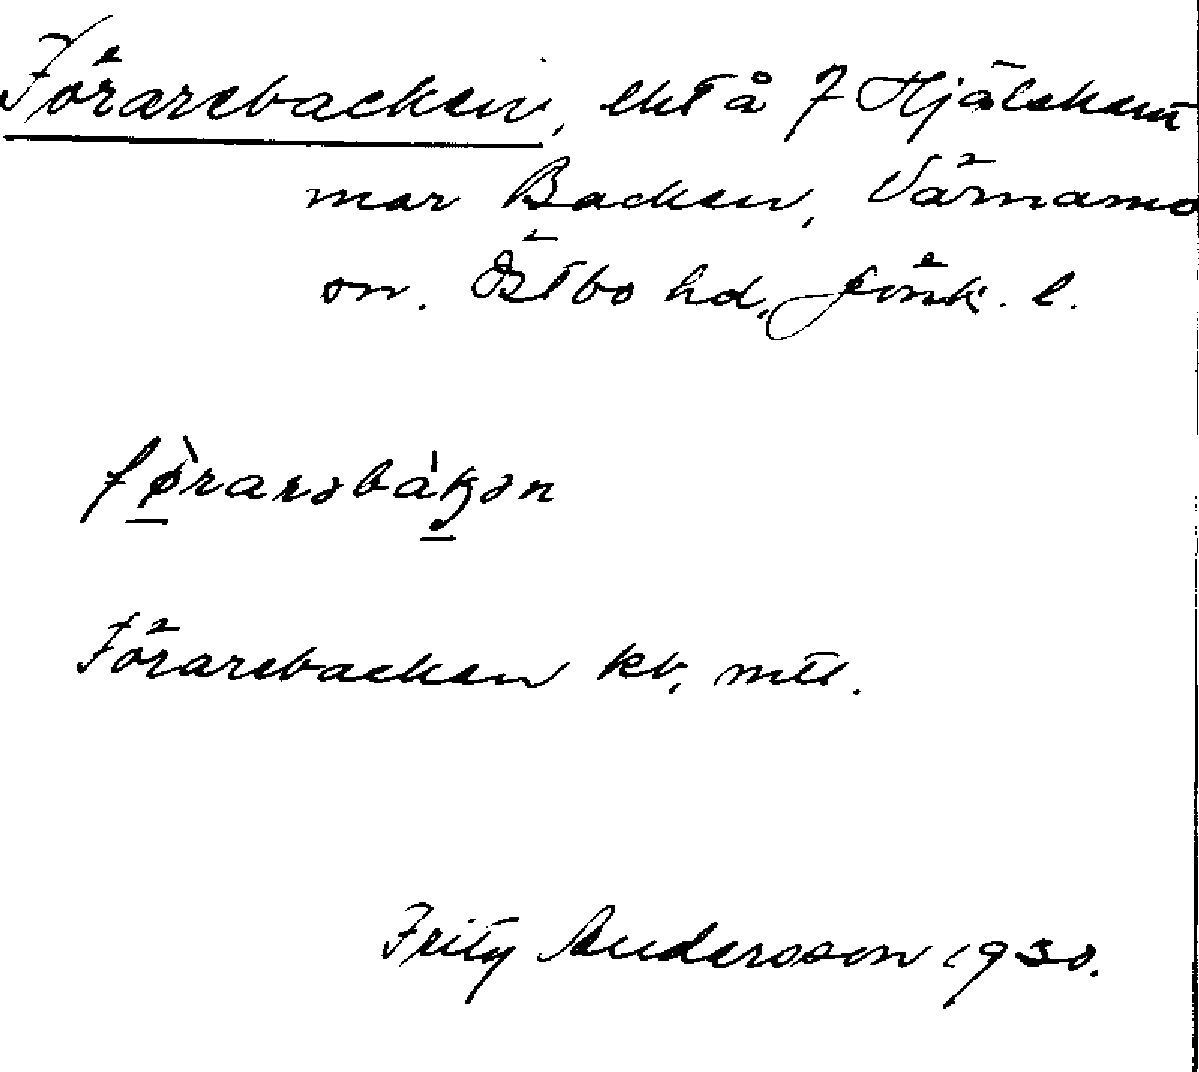 Förarebacken, lht å 7 Hjälsham
mar Backen, Värnamo
sn. Östbo hd, Jönk. l.
førarəbakən
Förarebacken kb, mtl.
Fritz Andersson 1930.